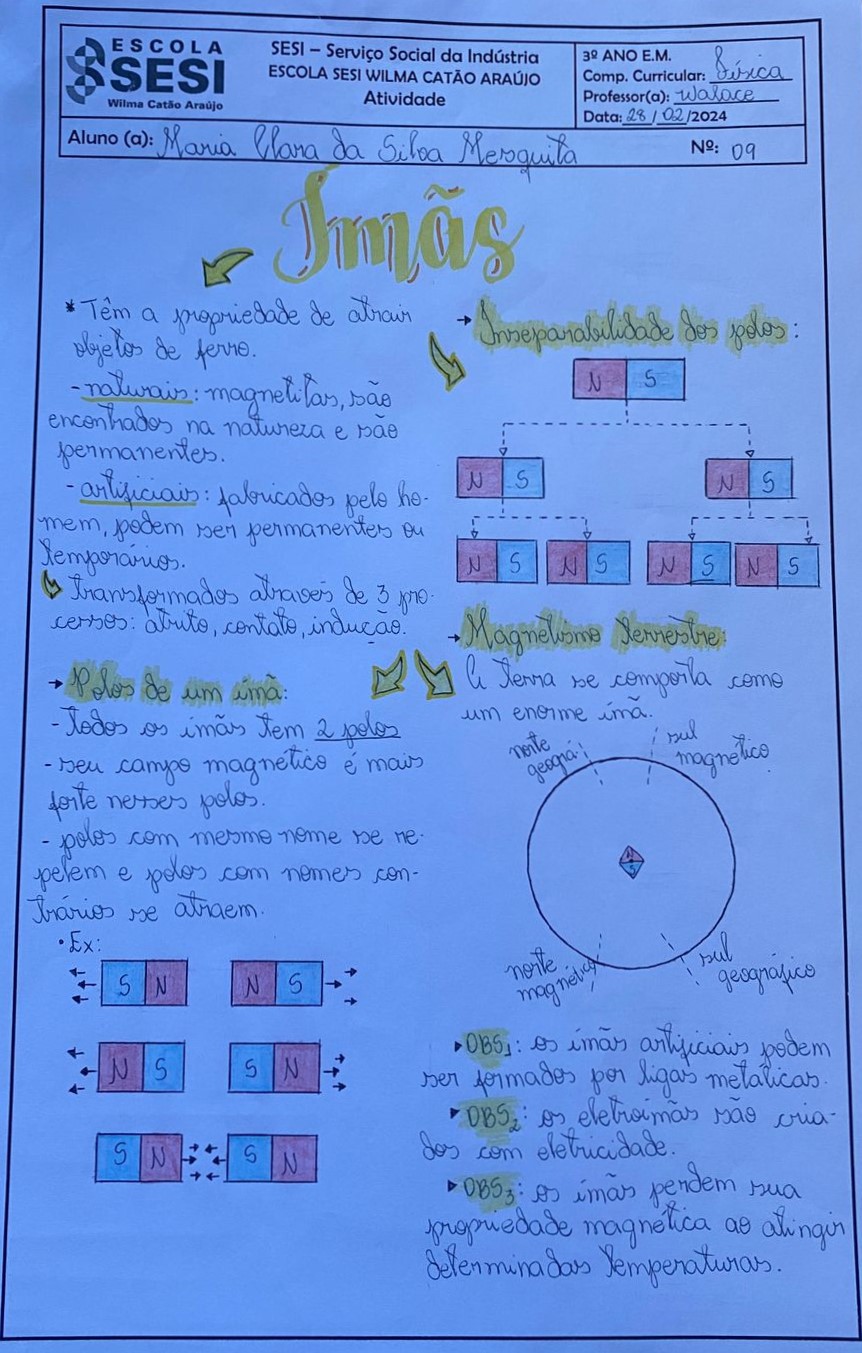 ESCOLA
SESI
Wilma Catão Araújo
SESI – Serviço Social da Indústria
ESCOLA SESI WILMA CATÃO ARAÚJO
Atividade
3º ANO E.M.
Comp. Curricular: Física
Professor(a): Walace
Data: 28/02/2024
Aluno (a): Maria Clara da Silva Mesquita
Nº: 09
Ímãs
* Têm a propriedade de atrair
objetos de ferro.
- naturais: magnetitas, são
encontrados na natureza e são
permanentes.
- artificiais: fabricados pelo ho-
mem, podem ser permanentes ou
temporários.
↳ transformados através de 3 pro-
cessos: atrito, contato, indução.
→ Polos de um ímã:
- Todos os ímãs tem 2 polos
- seu campo magnético é mais
forte nesses polos.
- polos com mesmo nome se re-
pelem e polos com nomes con-
trários se atraem.
• Ex:
S N N S
N S S N
S N S N
→ Inseparabilidade dos polos:
N S
N S N S
N S N S N S N S
→ Magnetismo Terrestre:
A Terra se comporta como
um enorme ímã.
norte
geográ
sul
magnético
N
S
norte
magnético
sul
geográfico
▸ OBS1: os ímãs artificiais podem
ser formados por ligas metálicas.
▸ OBS2: os eletroímãs são cria-
dos com eletricidade.
▸ OBS3: os ímãs perdem sua
propriedade magnética ao atingir
determinadas temperaturas.